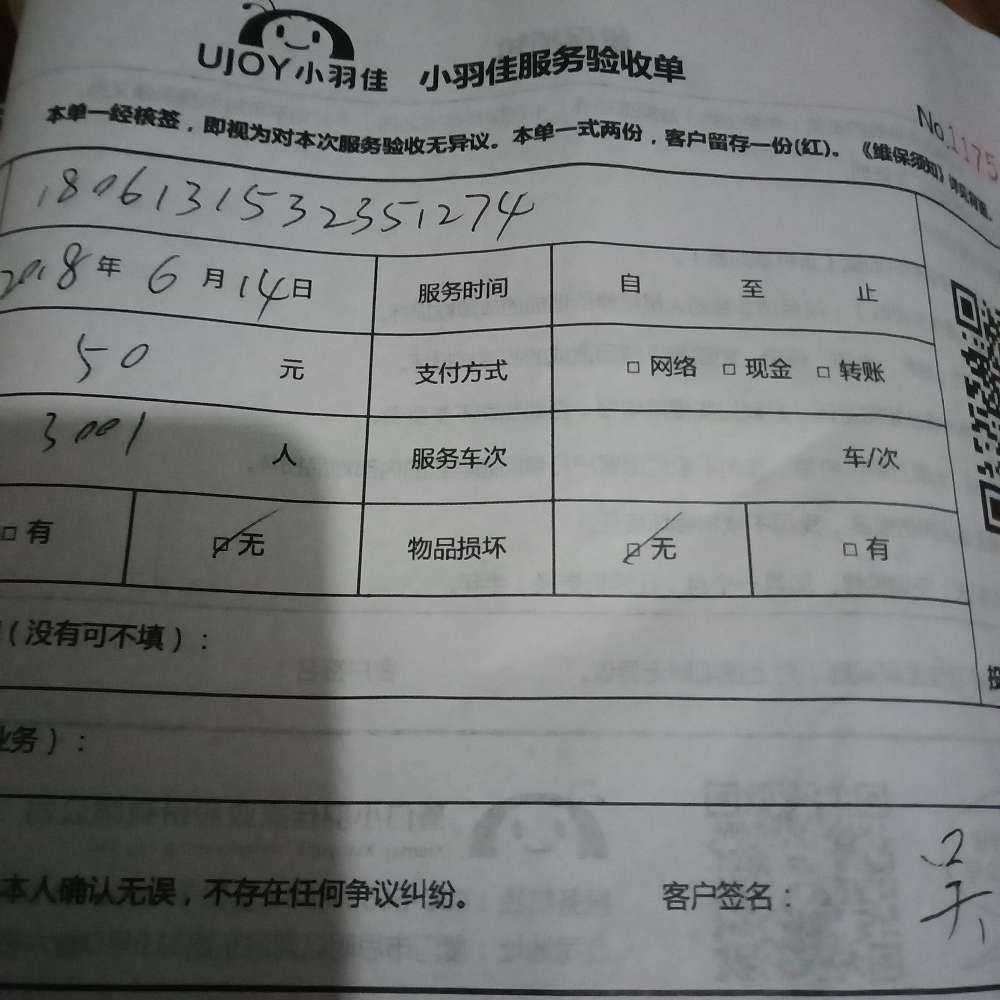 UJOY小羽佳 小羽佳服务验收单
No.1175
本单一经核签，即视为对本次服务验收无异议。本单一式两份，客户留存一份(红)。《维保须知》详见背面。
180613153235127​4
2018年 6月14日 服务时间 自 至 止
50 元 支付方式 □ 网络 □ 现金 □ 转账
3001 人 服务车次 车/次
□ 有 □ 无 物品损坏 □ 无 □ 有
（没有可不填）：
业务）：
本人确认无误，不存在任何争议纠纷。 客户签名：